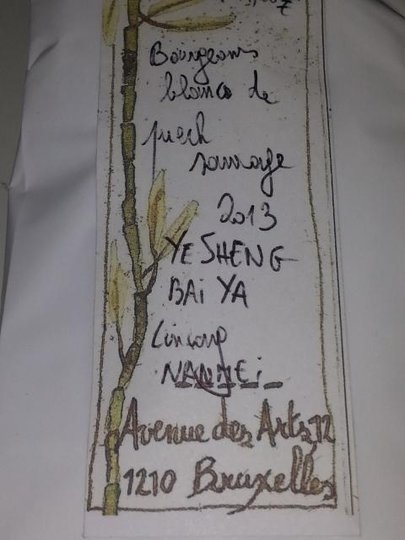 Bourgeons
blancs de
puerh
sauvage
2013
YE SHENG
BAI YA
Lincang
NANMEi
Avenue des Arts, 12
1210 Bruxelles